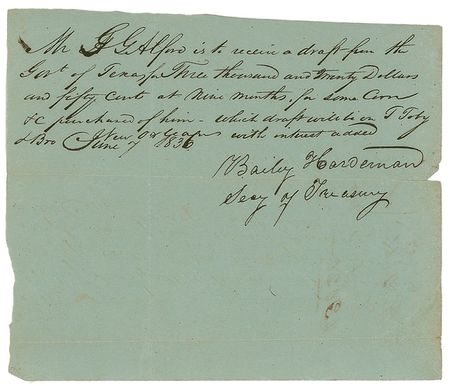 Mr G G Alford is to receive a draft from the
Govt of Texas for Three thousand and twenty Dollars
and fifty cents at Nine months for some Corn
&c purchased of him - which draft will be on T Toby
& Bro New Orleans with interest added
June 7 1836
Bailey Hardeman
Secy of Treasury